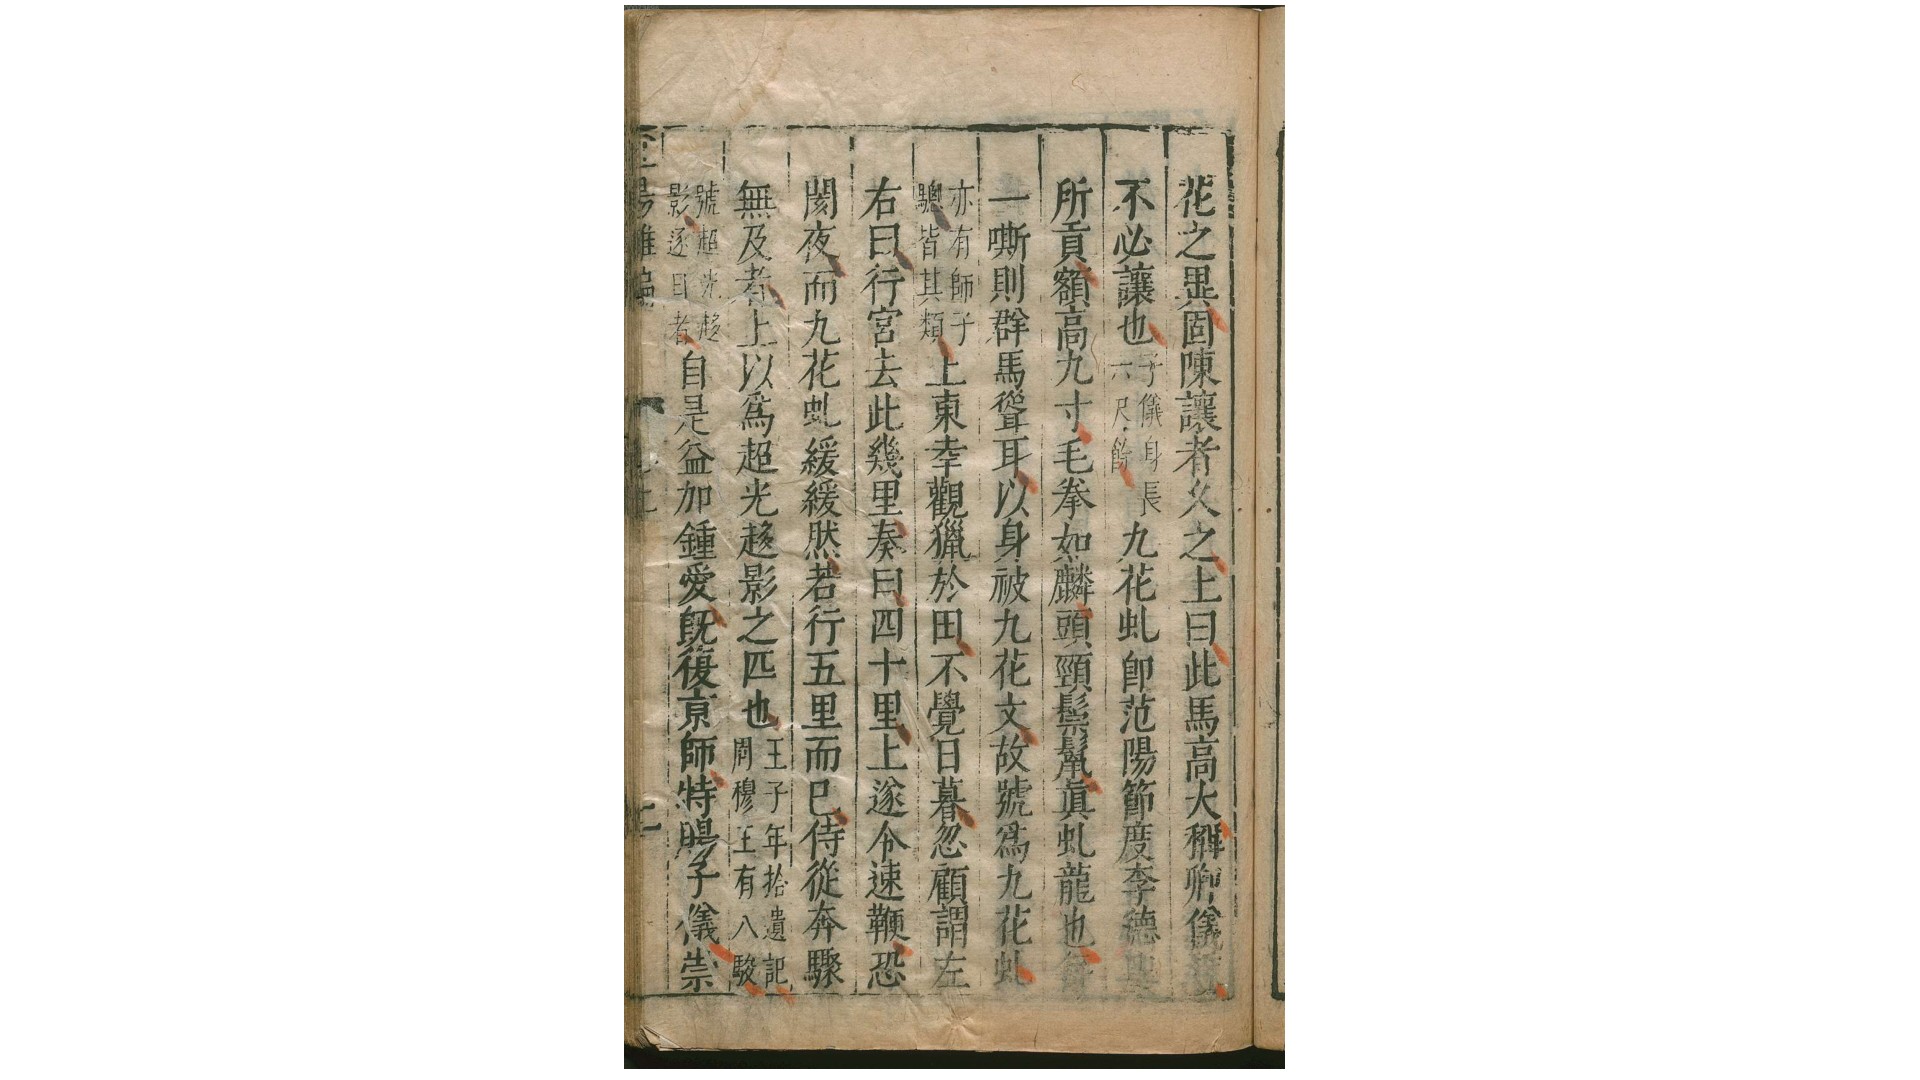 花之異固陳讓者久之上曰此馬高大稱卿儀
不必讓也子儀身長六尺餘九花虬卽范陽節度李德
所貢額高九寸毛拳如麟頭頸鬃鬣眞虬龍也每
一嘶則群馬聳耳以身被九花文故號爲九花虬
亦有師子驄皆其類上東幸觀獵於田不覺日暮忽顧謂左
右曰行宮去此幾里奏曰四十里上遂令速鞭恐
閡夜而九花虬緩緩然若行五里而已侍從奔驟
無及者上以爲超光趍影之匹也王子年拾遺記周穆王有八駿
號超光趍影逐日者自是益加鍾愛旣復京師特賜子儀崇